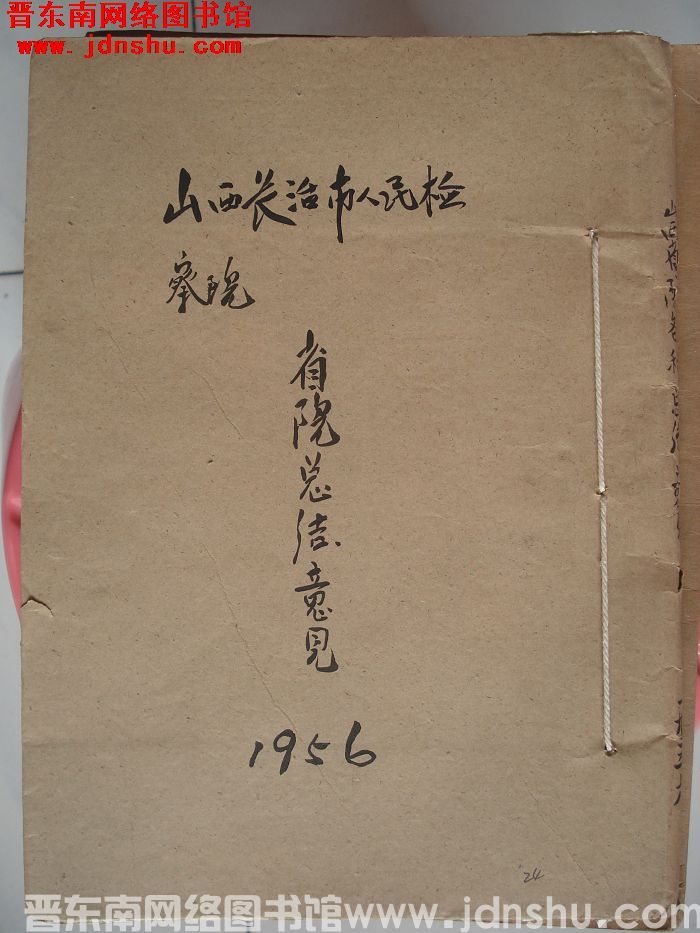 晋东南网络图书馆
www.jdnshu.com
山西长治市人民检
察院
省院总结意见
1956
24
晋东南网络图书馆www.jdnshu.com